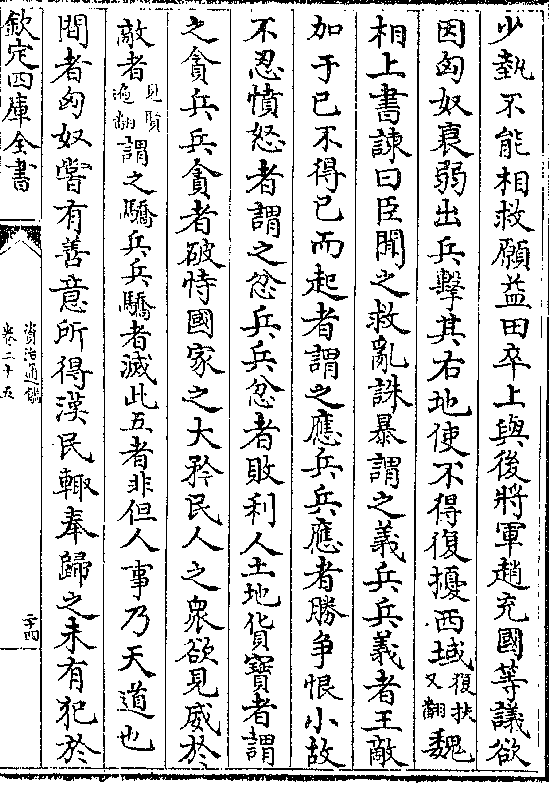 少埶不能相救願益田卒上與後將軍趙充國等議欲
因匈奴衰弱出兵擊其右地使不得復擾西域復扶又翻魏
相上書諫曰臣聞之救亂誅暴謂之義兵兵義者王敵
加于已不得已而起者謂之應兵兵應者勝爭恨小故
不忍憤怒者謂之忿兵兵忿者敗利人土地貨寶者謂
之貪兵兵貪者破恃國家之大矜民人之衆欲見威於
敵者見賢遍翻謂之驕兵兵驕者滅此五者非但人事乃天道也
間者匈奴嘗有善意所得漢民輒奉歸之未有犯於
欽定四庫全書
資治通鑑
卷二十五
二十四